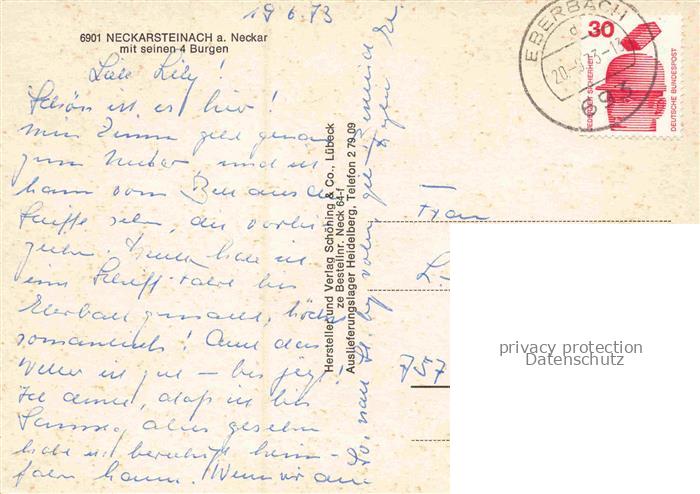 19 6. 73
6901 NECKARSTEINACH a. Neckar
mit seinen 4 Burgen
Liebe Lily!
Schön ist es hier!
Mein Zimmer geht genau
zum Neckar und ich
kann vom Bett aus die
Schiffe sehen, die vorbei
ziehen. Heute habe ich
eine Schiff-Fahrt bis
Eberbach gemacht, höchst
romantisch! Auch das
Wetter ist gut – bis jetzt!
Ich denke, daß ich bis
Samstag alles gesehen
habe und beruhigt heim-
fahren kann. Wenn wir am
Hersteller und Verlag Schöning & Co., Lübeck
ze Bestellnr. Neck 64-f
Auslieferungslager Heidelberg, Telefon 2 79 09
EBERBACH
693
30
JEDERZEIT SICHERHEIT
DEUTSCHE BUNDESPOST
Frau
L.
757
privacy protection
Datenschutz